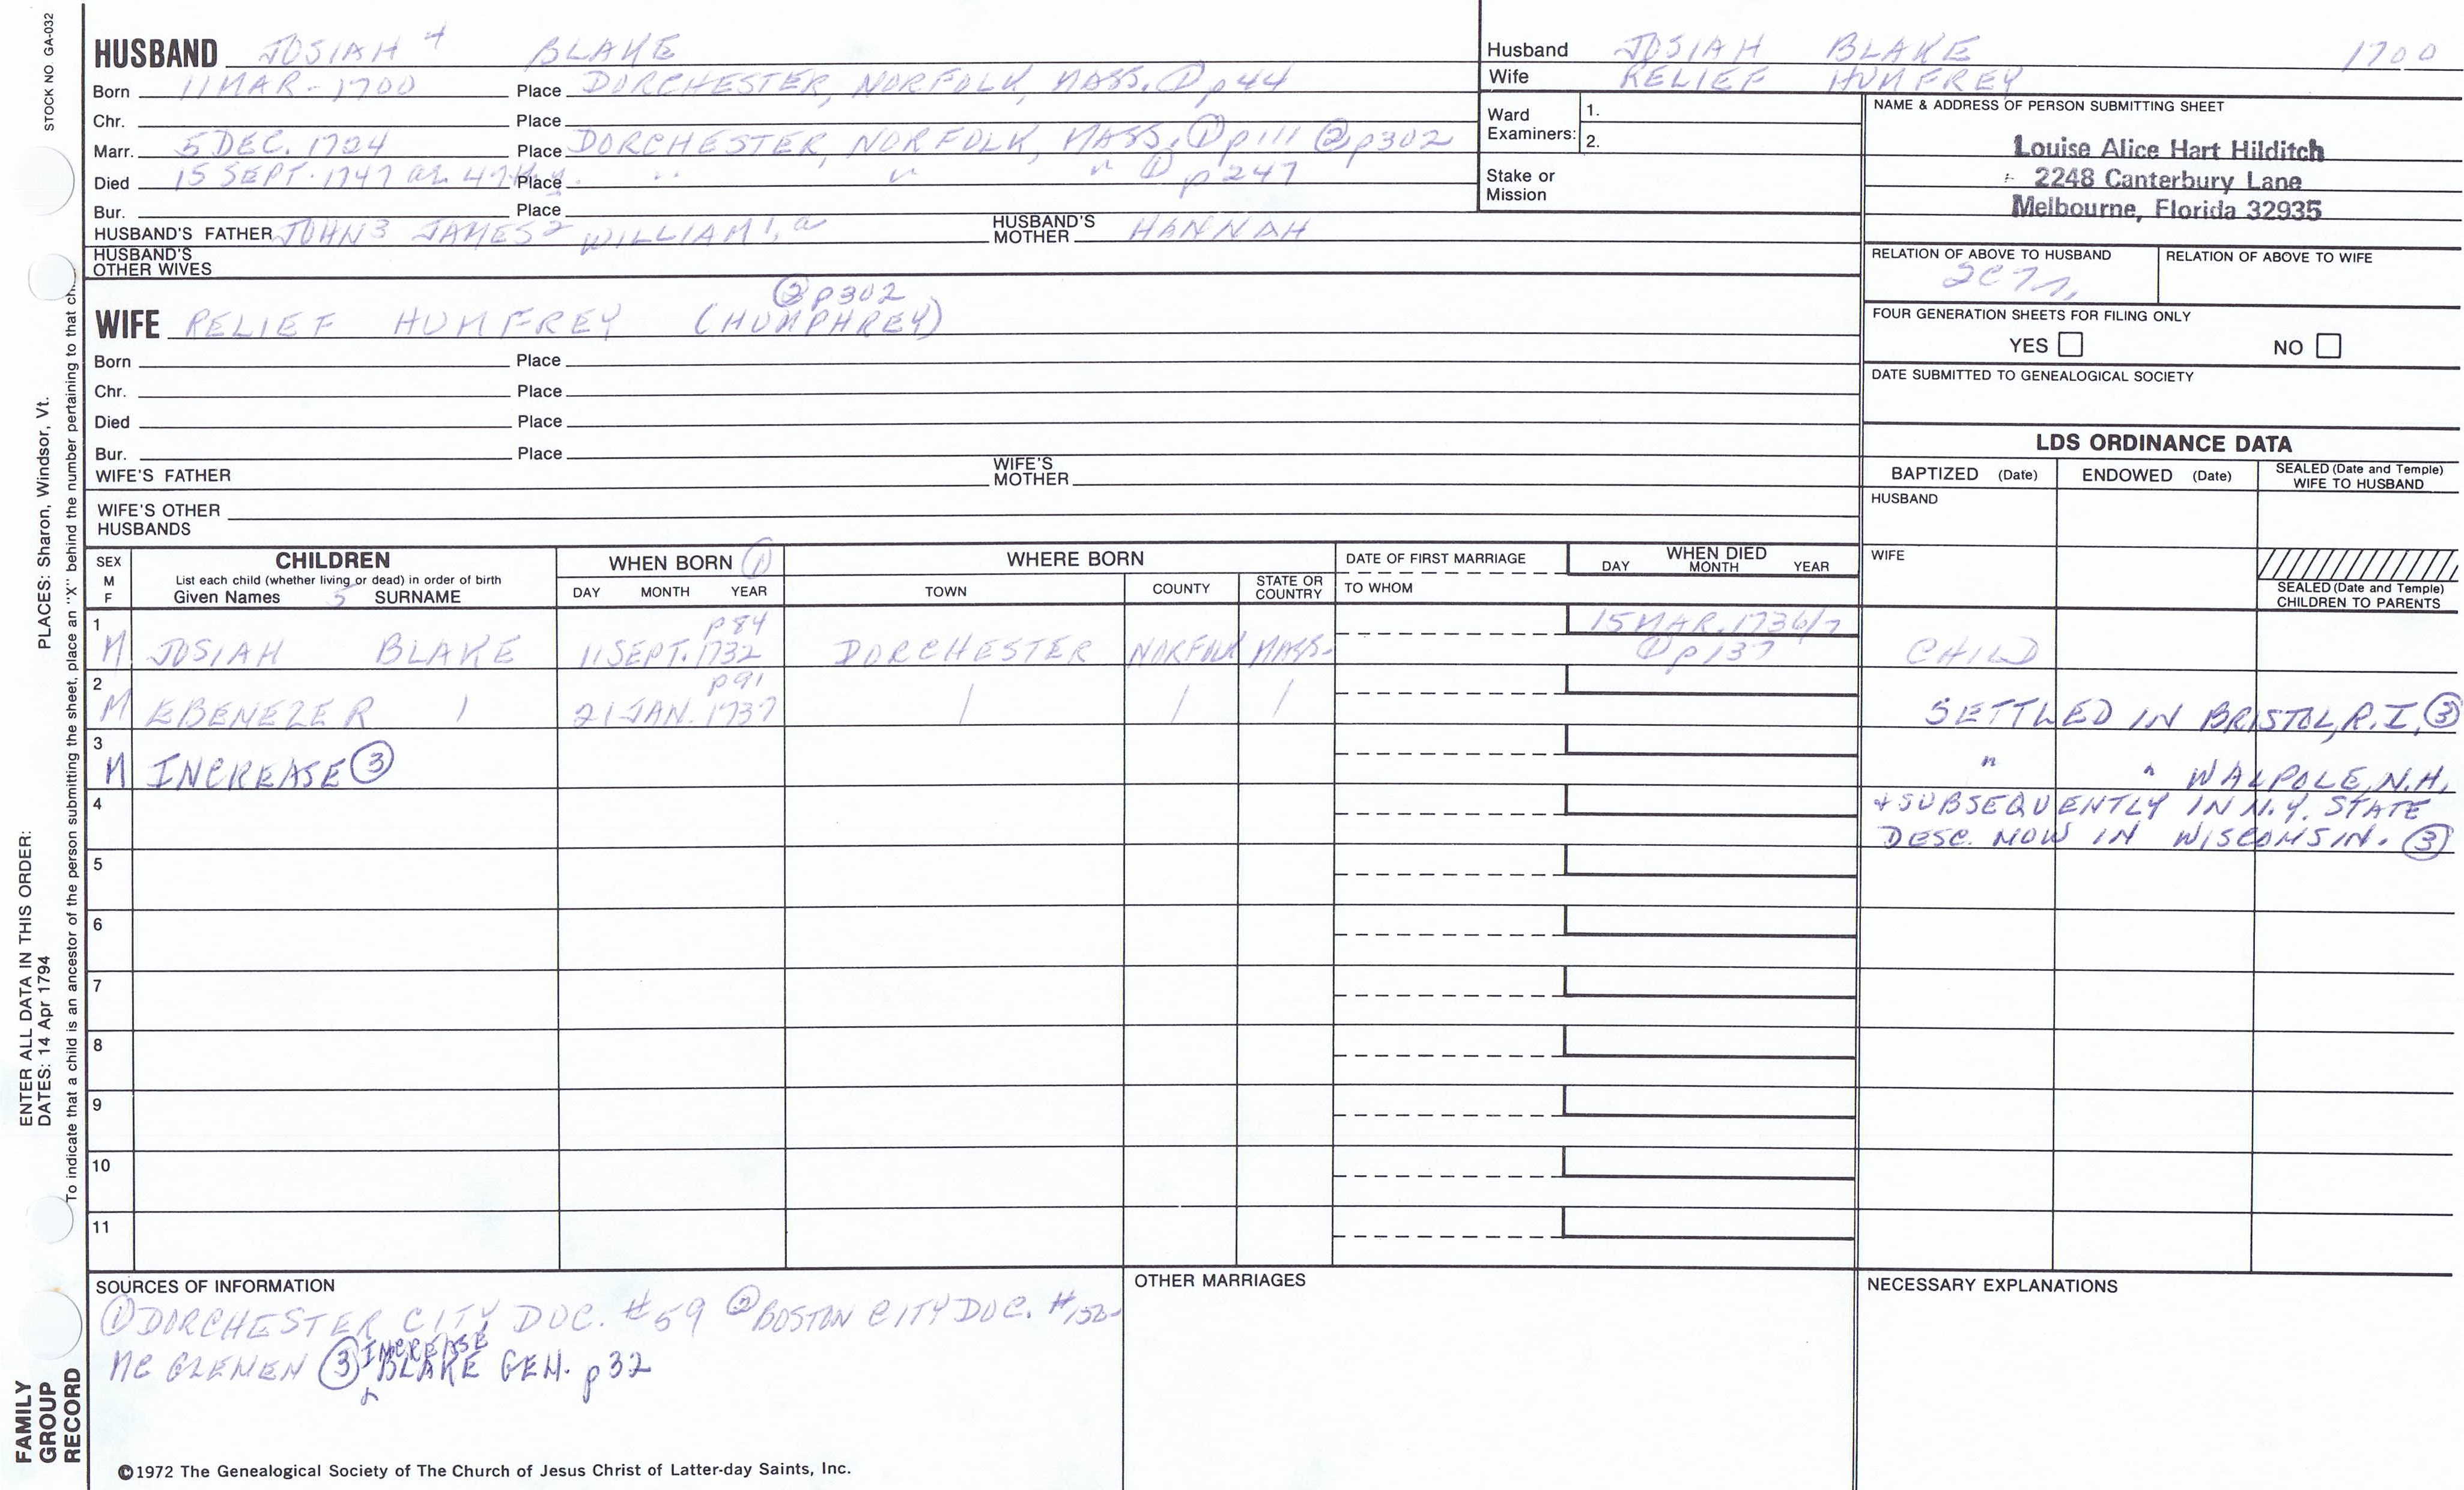 STOCK NO GA-032
HUSBAND JOSIAH 4 BLAKE
Born 11 MAR - 1700 Place DORCHESTER, NORFOLK, MASS. ① p44
Chr. Place
Marr. 5 DEC. 1724 Place DORCHESTER, NORFOLK, MASS. ① p111 ② p302
Died 15 SEPT. 1747 Place " " " ① p247
Bur. Place
HUSBAND'S FATHER JOHN 3 JAMES 2 WILLIAM 1, a HUSBAND'S MOTHER HANNAH
HUSBAND'S OTHER WIVES
② p302
WIFE RELIEF HUMFREY (HUMPHREY)
Born Place
Chr. Place
Died Place
Bur. Place
WIFE'S FATHER WIFE'S MOTHER
WIFE'S OTHER HUSBANDS
Husband JOSIAH BLAKE 1700
Wife RELIEF HUMFREY
Ward Examiners: 1.
2.
Stake or Mission
NAME & ADDRESS OF PERSON SUBMITTING SHEET
Louise Alice Hart Hilditch
2248 Canterbury Lane
Melbourne, Florida 32935
RELATION OF ABOVE TO HUSBAND RELATION OF ABOVE TO WIFE
2C7r.
FOUR GENERATION SHEETS FOR FILING ONLY
YES NO
DATE SUBMITTED TO GENEALOGICAL SOCIETY
LDS ORDINANCE DATA
BAPTIZED (Date) ENDOWED (Date) SEALED (Date and Temple) WIFE TO HUSBAND
HUSBAND
WIFE
SEALED (Date and Temple) CHILDREN TO PARENTS
SEX M F CHILDREN WHEN BORN ① WHERE BORN DATE OF FIRST MARRIAGE WHEN DIED
List each child (whether living or dead) in order of birth DAY MONTH YEAR
Given Names 5 SURNAME DAY MONTH YEAR TOWN COUNTY STATE OR COUNTRY TO WHOM
1 p84 15 MAR. 1736/7
M JOSIAH BLAKE 11 SEPT. 1732 DORCHESTER NORFOLK MASS. ① p137 CHILD
2 p91
M EBENEZER | 21 JAN. 1737 | | | SETTLED IN BRISTOL, R.I. ③
3
M INCREASE ③ " " WALPOLE, N.H,
4 + SUBSEQUENTLY IN N.Y. STATE
DESC. NOW IN WISCONSIN. ③
5
6
7
8
9
10
11
SOURCES OF INFORMATION
① DORCHESTER CITY DOC. #59 ② BOSTON CITY DOC. #152
MC GLENEN ③ INCREASE BLAKE GEN. p32
OTHER MARRIAGES
NECESSARY EXPLANATIONS
©1972 The Genealogical Society of The Church of Jesus Christ of Latter-day Saints, Inc.
ENTER ALL DATA IN THIS ORDER:
DATES: 14 Apr 1794 PLACES: Sharon, Windsor, Vt.
To indicate that a child is an ancestor of the person submitting the sheet, place an "X" behind the number pertaining to that
FAMILY
GROUP
RECORD